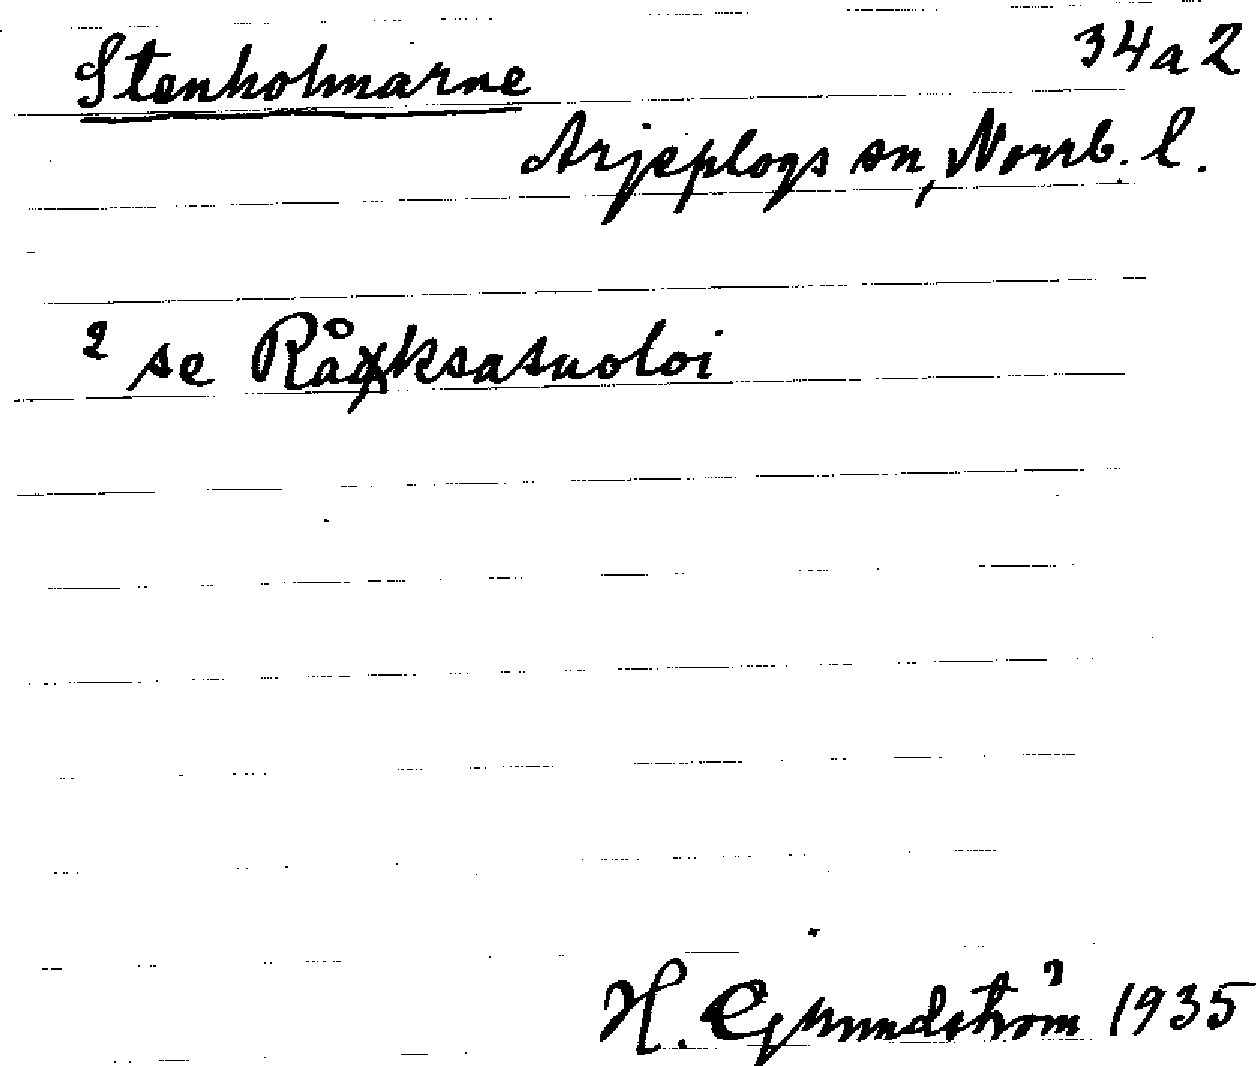 Stenholmarne 34a2
Arjeplogs sn, Norrb. l.
2 se Råχksasuoloi
H. Grundström 1935